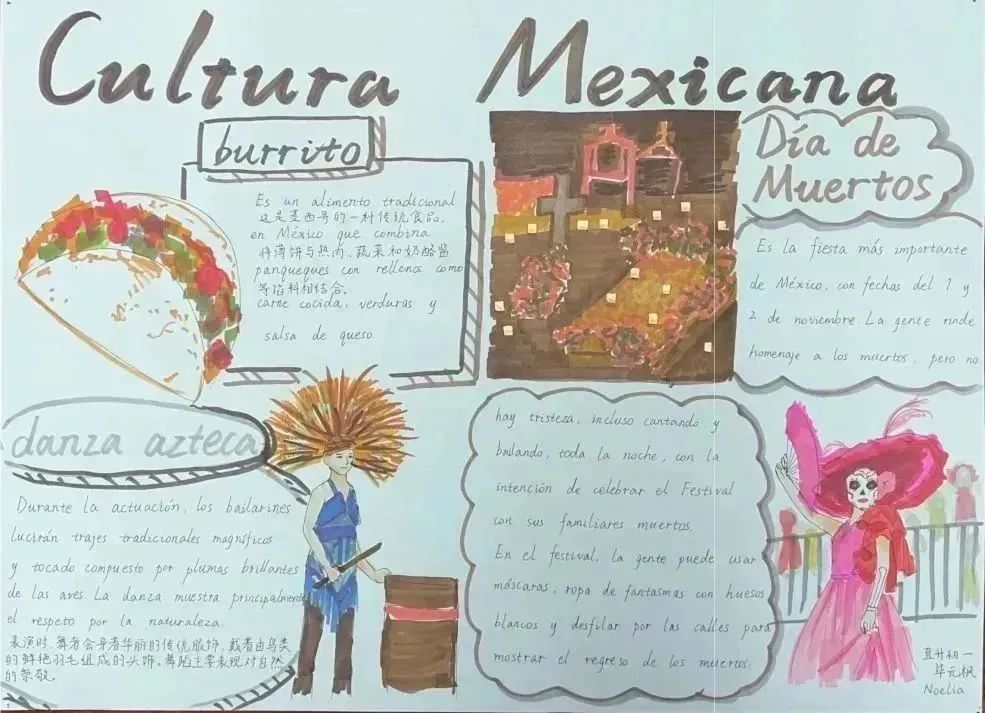 Cultura Mexicana
burrito
Es un alimento tradicional
这是墨西哥的一种传统食品,
en México que combina
将薄饼与热肉、蔬菜和奶酪酱
panqueques con rellenos como
等馅料相结合。
carne cocida, verduras y
salsa de queso.
Día de
Muertos
Es la fiesta más importante
de México, con fechas del 1 y
2 de noviembre. La gente rinde
homenaje a los muertos, pero no
hay tristeza, incluso cantando y
bailando, toda la noche, con la
intención de celebrar el Festival
con sus familiares muertos.
En el festival, la gente puede usar
máscaras, ropa de fantasmas con huesos
blancos y desfilar por las calles para
mostrar el regreso de los muertos.
danza azteca
Durante la actuación, los bailarines
lucirán trajes tradicionales magníficos
y tocado compuesto por plumas brillantes
de las aves. La danza muestra principalmente
el respeto por la naturaleza.
表演时,舞者会身着华丽的传统服饰,戴着由鸟类
的鲜艳羽毛组成的头饰,舞蹈主要表现对自然
的崇敬。
直升初一
毕元枫
Noelia